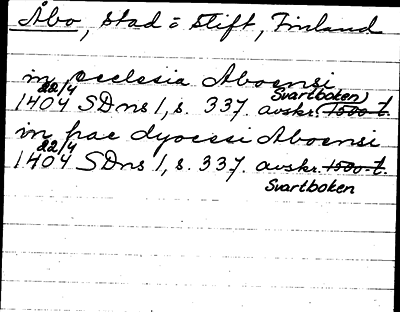 Åbo, stad = stift, Finland
in ecclesia Aboensi
22/4 Svartboken)
1404 SDns 1, s. 337. avskr. 1500-t.
in hac dyocesi Aboensi
22/4
1404 SDns 1, s. 337. avskr. 1500-t.
Svartboken